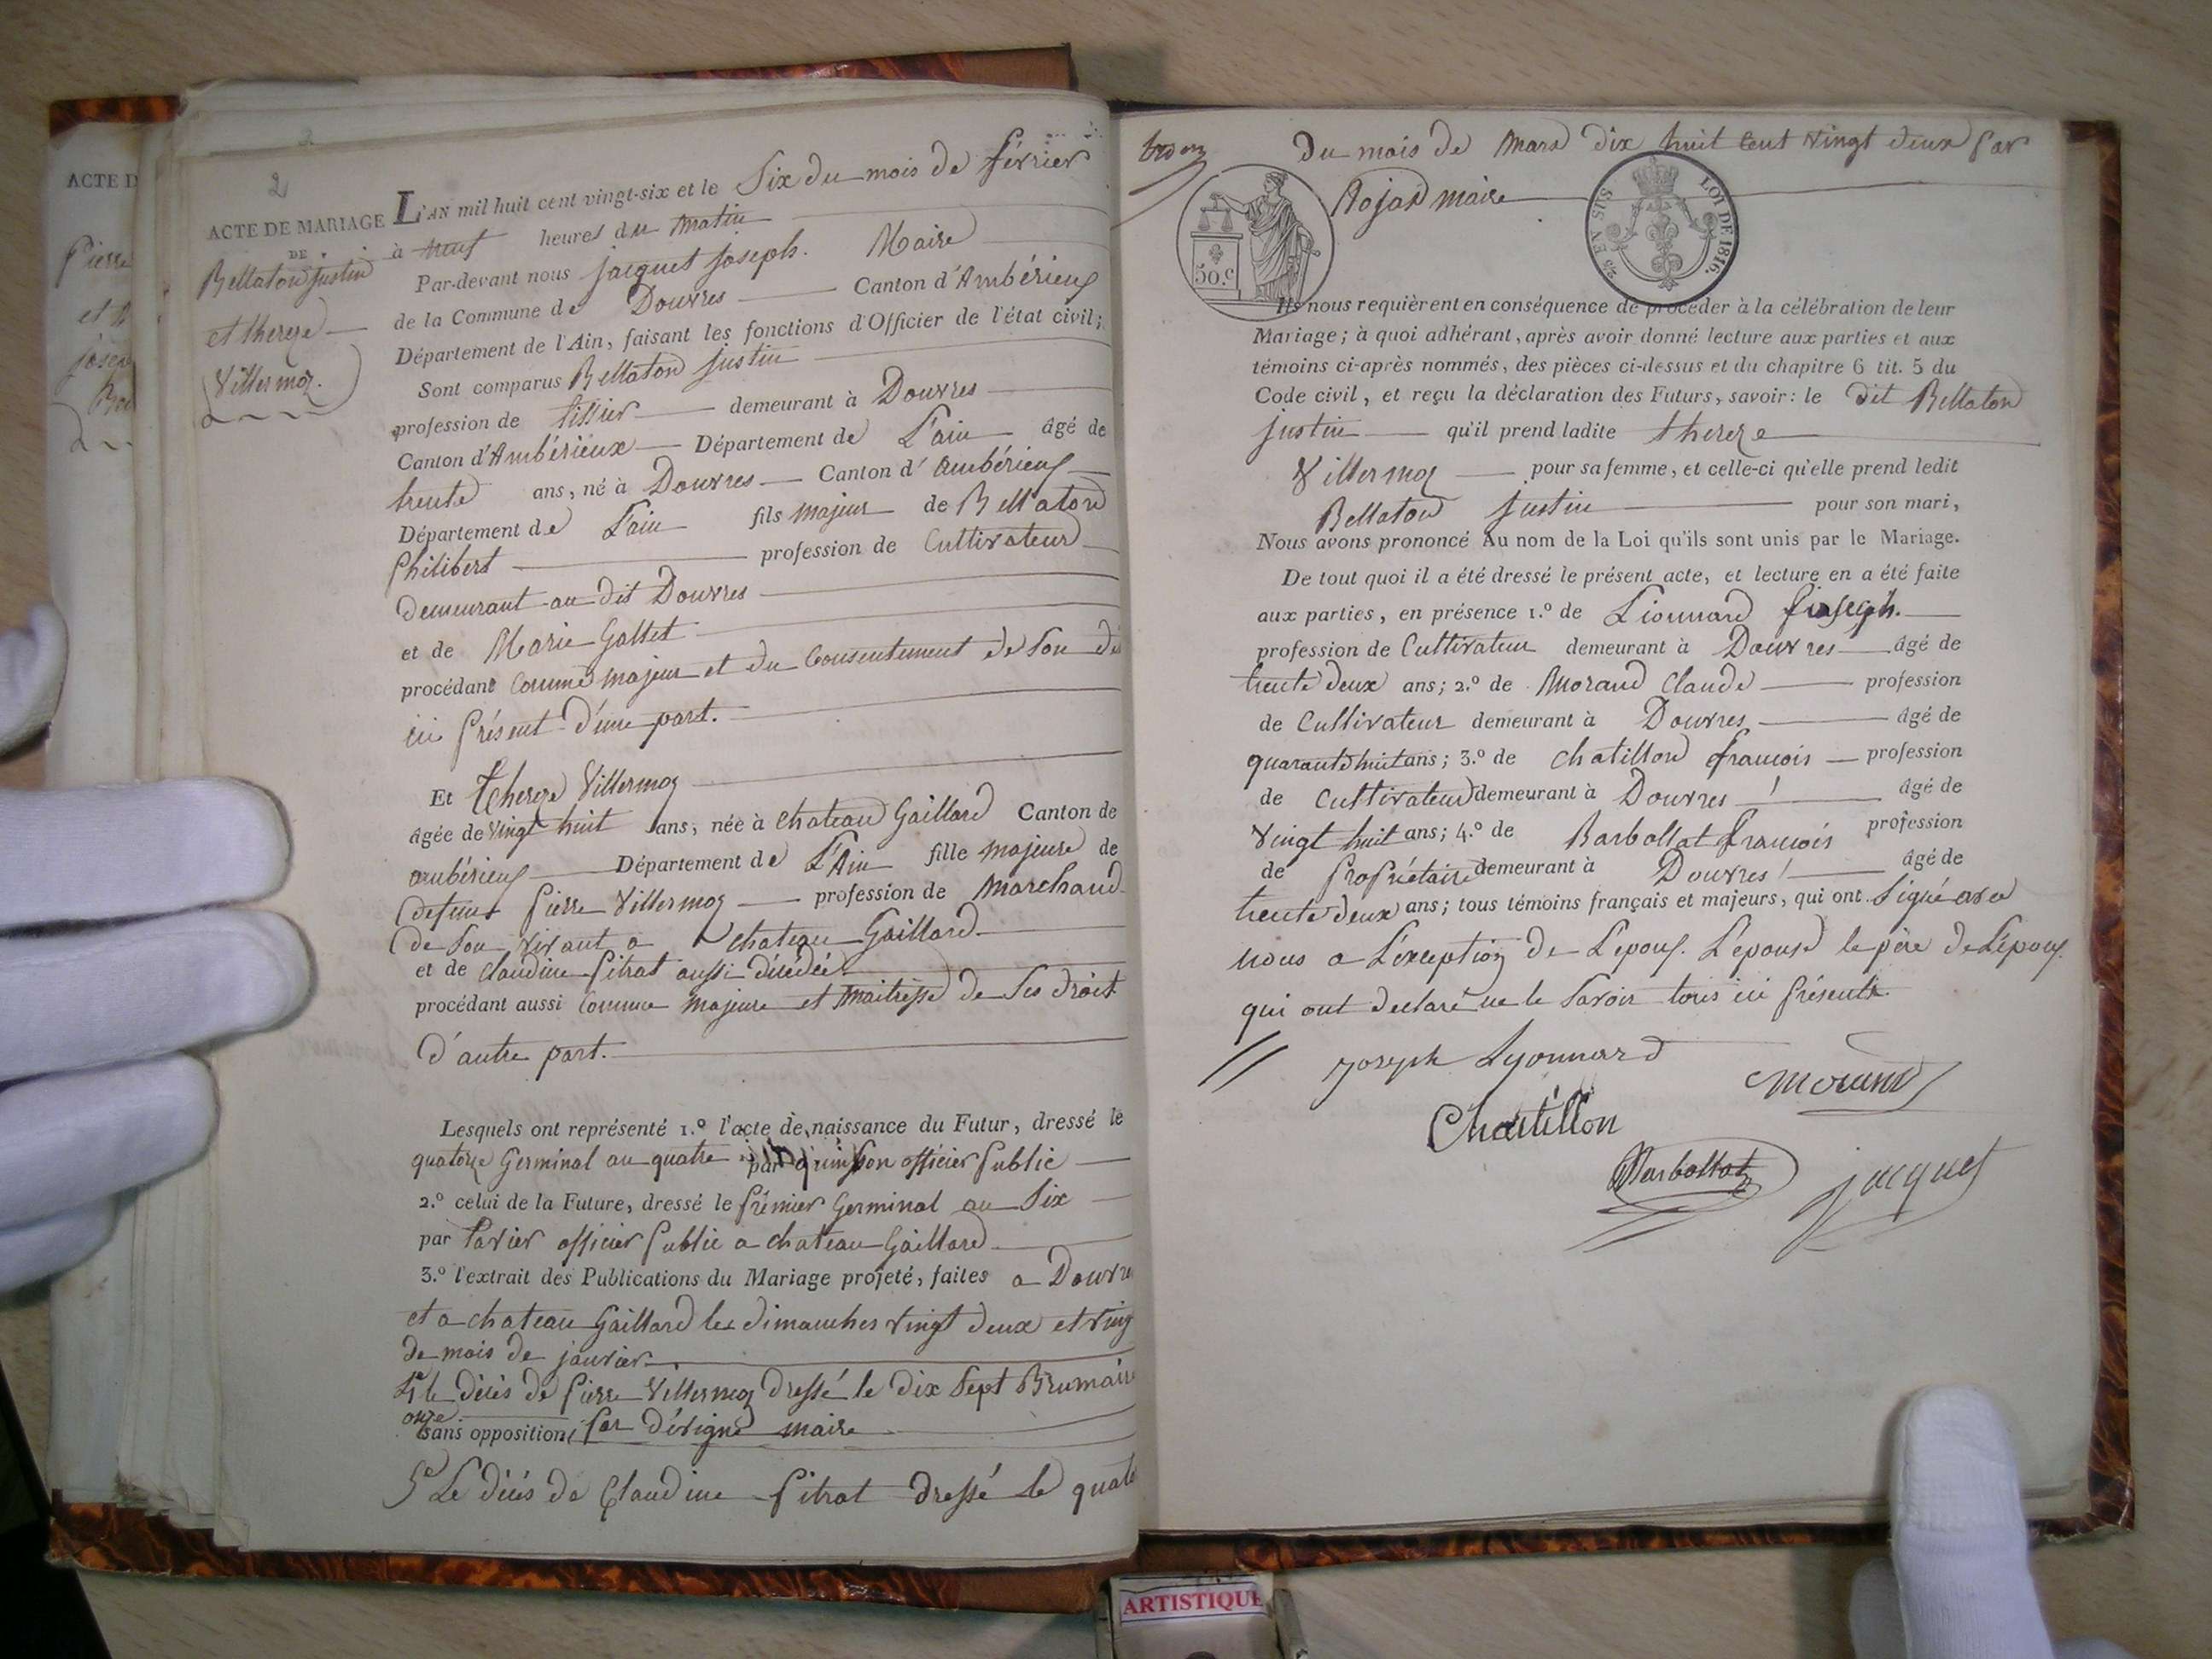 ACTE D
Pierre
et
joseph
2
ACTE DE MARIAGE
DE
Bellaton Justin
et thereze
Villermoz.
L'AN mil huit cent vingt-six et le Six du mois de février
à neuf heures du matin
Par-devant nous jacquet joseph. Maire
de la Commune de Douvres Canton d'Ambérieux
Département de l'Ain, faisant les fonctions d'Officier de l'état civil;
Sont comparus Bellaton Justin
profession de tissier demeurant à Douvres
Canton d'Ambérieux Département de L'ain âgé de
trente ans, né à Douvres Canton d'ambérieux
Département de L'ain fils majeur de Bellaton
Philibert profession de Cultivateur
demeurant au dit Douvres
et de Marie Gallet
procédant comme majeur et du Consentement de Son dit
ici présent d'une part.
Et thereze Villermoz
âgée de vingt huit ans, née à chateau Gaillard Canton de
ambérieux Département de L'Ain fille majeure de
defunt pierre Villermoz profession de Marchand
de Son vivant a chateau Gaillard
et de claudine pitrat aussi décédée
procédant aussi Comme majeure et maitresse de Ses droit
d'autre part.
Lesquels ont représenté 1.º l'acte de naissance du Futur, dressé le
quatorze Germinal an quatre par quinson officier public
2.º celui de la Future, dressé le prémier Germinal an Six
par tavier officier public a chateau Gaillard
3.º l'extrait des Publications du Mariage projeté, faites a Douvres
et a chateau Gaillard les dimanches vingt deux et ving
de mois de janvier
4e le décès de pierre Villermoz dressé le dix Sept Brumaire
onze
sans opposition, par dévigne maire
5e Le décés de Claudine pitrat dressé le quato
du mois de Mars dix huit Cent vingt deux par
Rojat maire
50.c
2/5 EN SUS
LOI DE 1816.
Ils nous requièrent en conséquence de procéder à la célébration de leur
Mariage; à quoi adhérant, après avoir donné lecture aux parties et aux
témoins ci-après nommés, des pièces ci-dessus et du chapitre 6 tit. 5 du
Code civil, et reçu la déclaration des Futurs, savoir: le dit Bellaton
justin qu'il prend ladite thereze
Villermoz pour sa femme, et celle-ci qu'elle prend ledit
Bellaton justin pour son mari,
Nous avons prononcé Au nom de la Loi qu'ils sont unis par le Mariage.
De tout quoi il a été dressé le présent acte, et lecture en a été faite
aux parties, en présence 1.º de Lionnard joseph.
profession de Cultivateur demeurant à Douvres âgé de
trente deux ans; 2.º de Morand Claude profession
de Cultivateur demeurant à Douvres âgé de
quarante huit ans; 3.º de chatillon françois profession
de Cultivateur demeurant à Douvres âgé de
vingt huit ans; 4.º de Barbollat françois profession
de propriétaire demeurant à Douvres âgé de
trente deux ans; tous témoins français et majeurs, qui ont Signé avec
nous a L'exception de L'epoux. L'epouse le père de L'époux
qui ont declaré ne le Savoir tous ici présents.
joseph Lyonnard
morand
Chatillon
Barbollat
jacquet
ARTISTIQUE